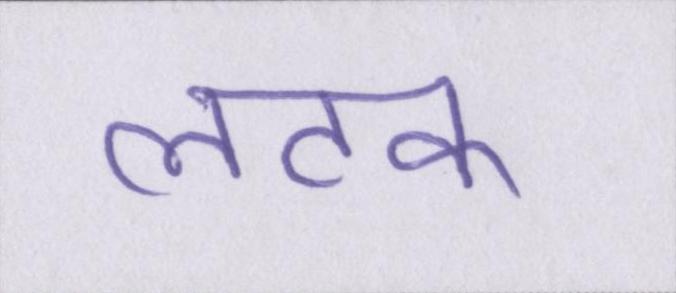 लटक